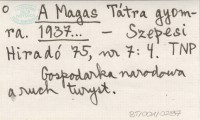 o A Magas Tátra gyom-
ra. 1937... — Szepesi
Hiradó 75, nr 7: 4. TNP
Gospodarka narodowa
a ruch turyst.